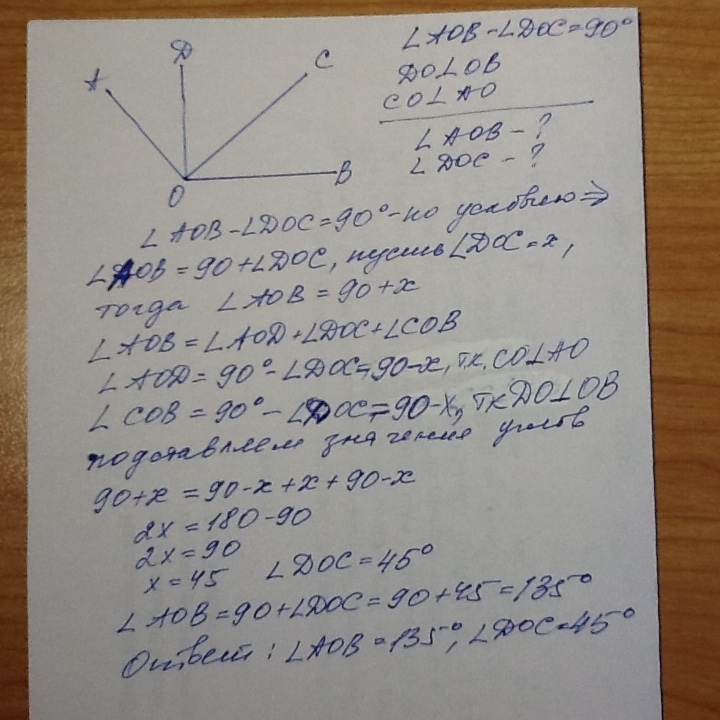 ∠AOB - ∠DOC = 90°
DO⊥OB
CO⊥AO
∠AOB - ?
∠DOC - ?
A
D
C
B
O
∠AOB - ∠DOC = 90° - по условию ⇒
∠AOB = 90 + ∠DOC, пусть ∠DOC = x,
тогда ∠AOB = 90 + x
∠AOB = ∠AOD + ∠DOC + ∠COB
∠AOD = 90° - ∠DOC = 90 - x, т.к. CO⊥AO
∠COB = 90° - ∠DOC = 90 - x, тк DO⊥OB
подставляем значения углов
90 + x = 90 - x + x + 90 - x
2x = 180 - 90
2x = 90
x = 45 ∠DOC = 45°
∠AOB = 90 + ∠DOC = 90 + 45 = 135°
Ответ: ∠AOB = 135°, ∠DOC = 45°